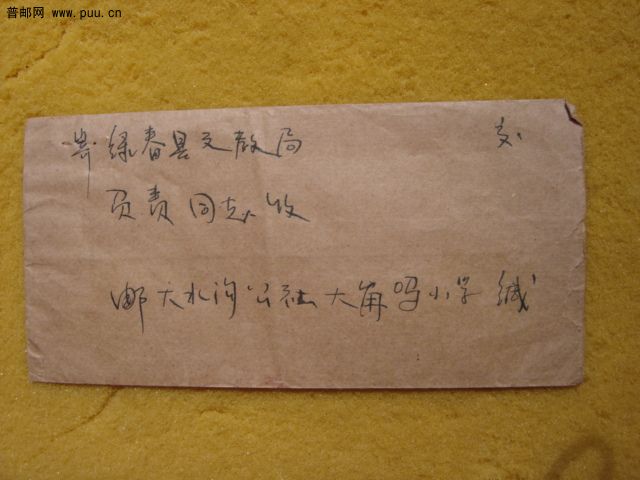 普邮网 www.puu.cn
寄绿春县文教局 交
负责同志收
邮大水沟公社大角吗小学缄